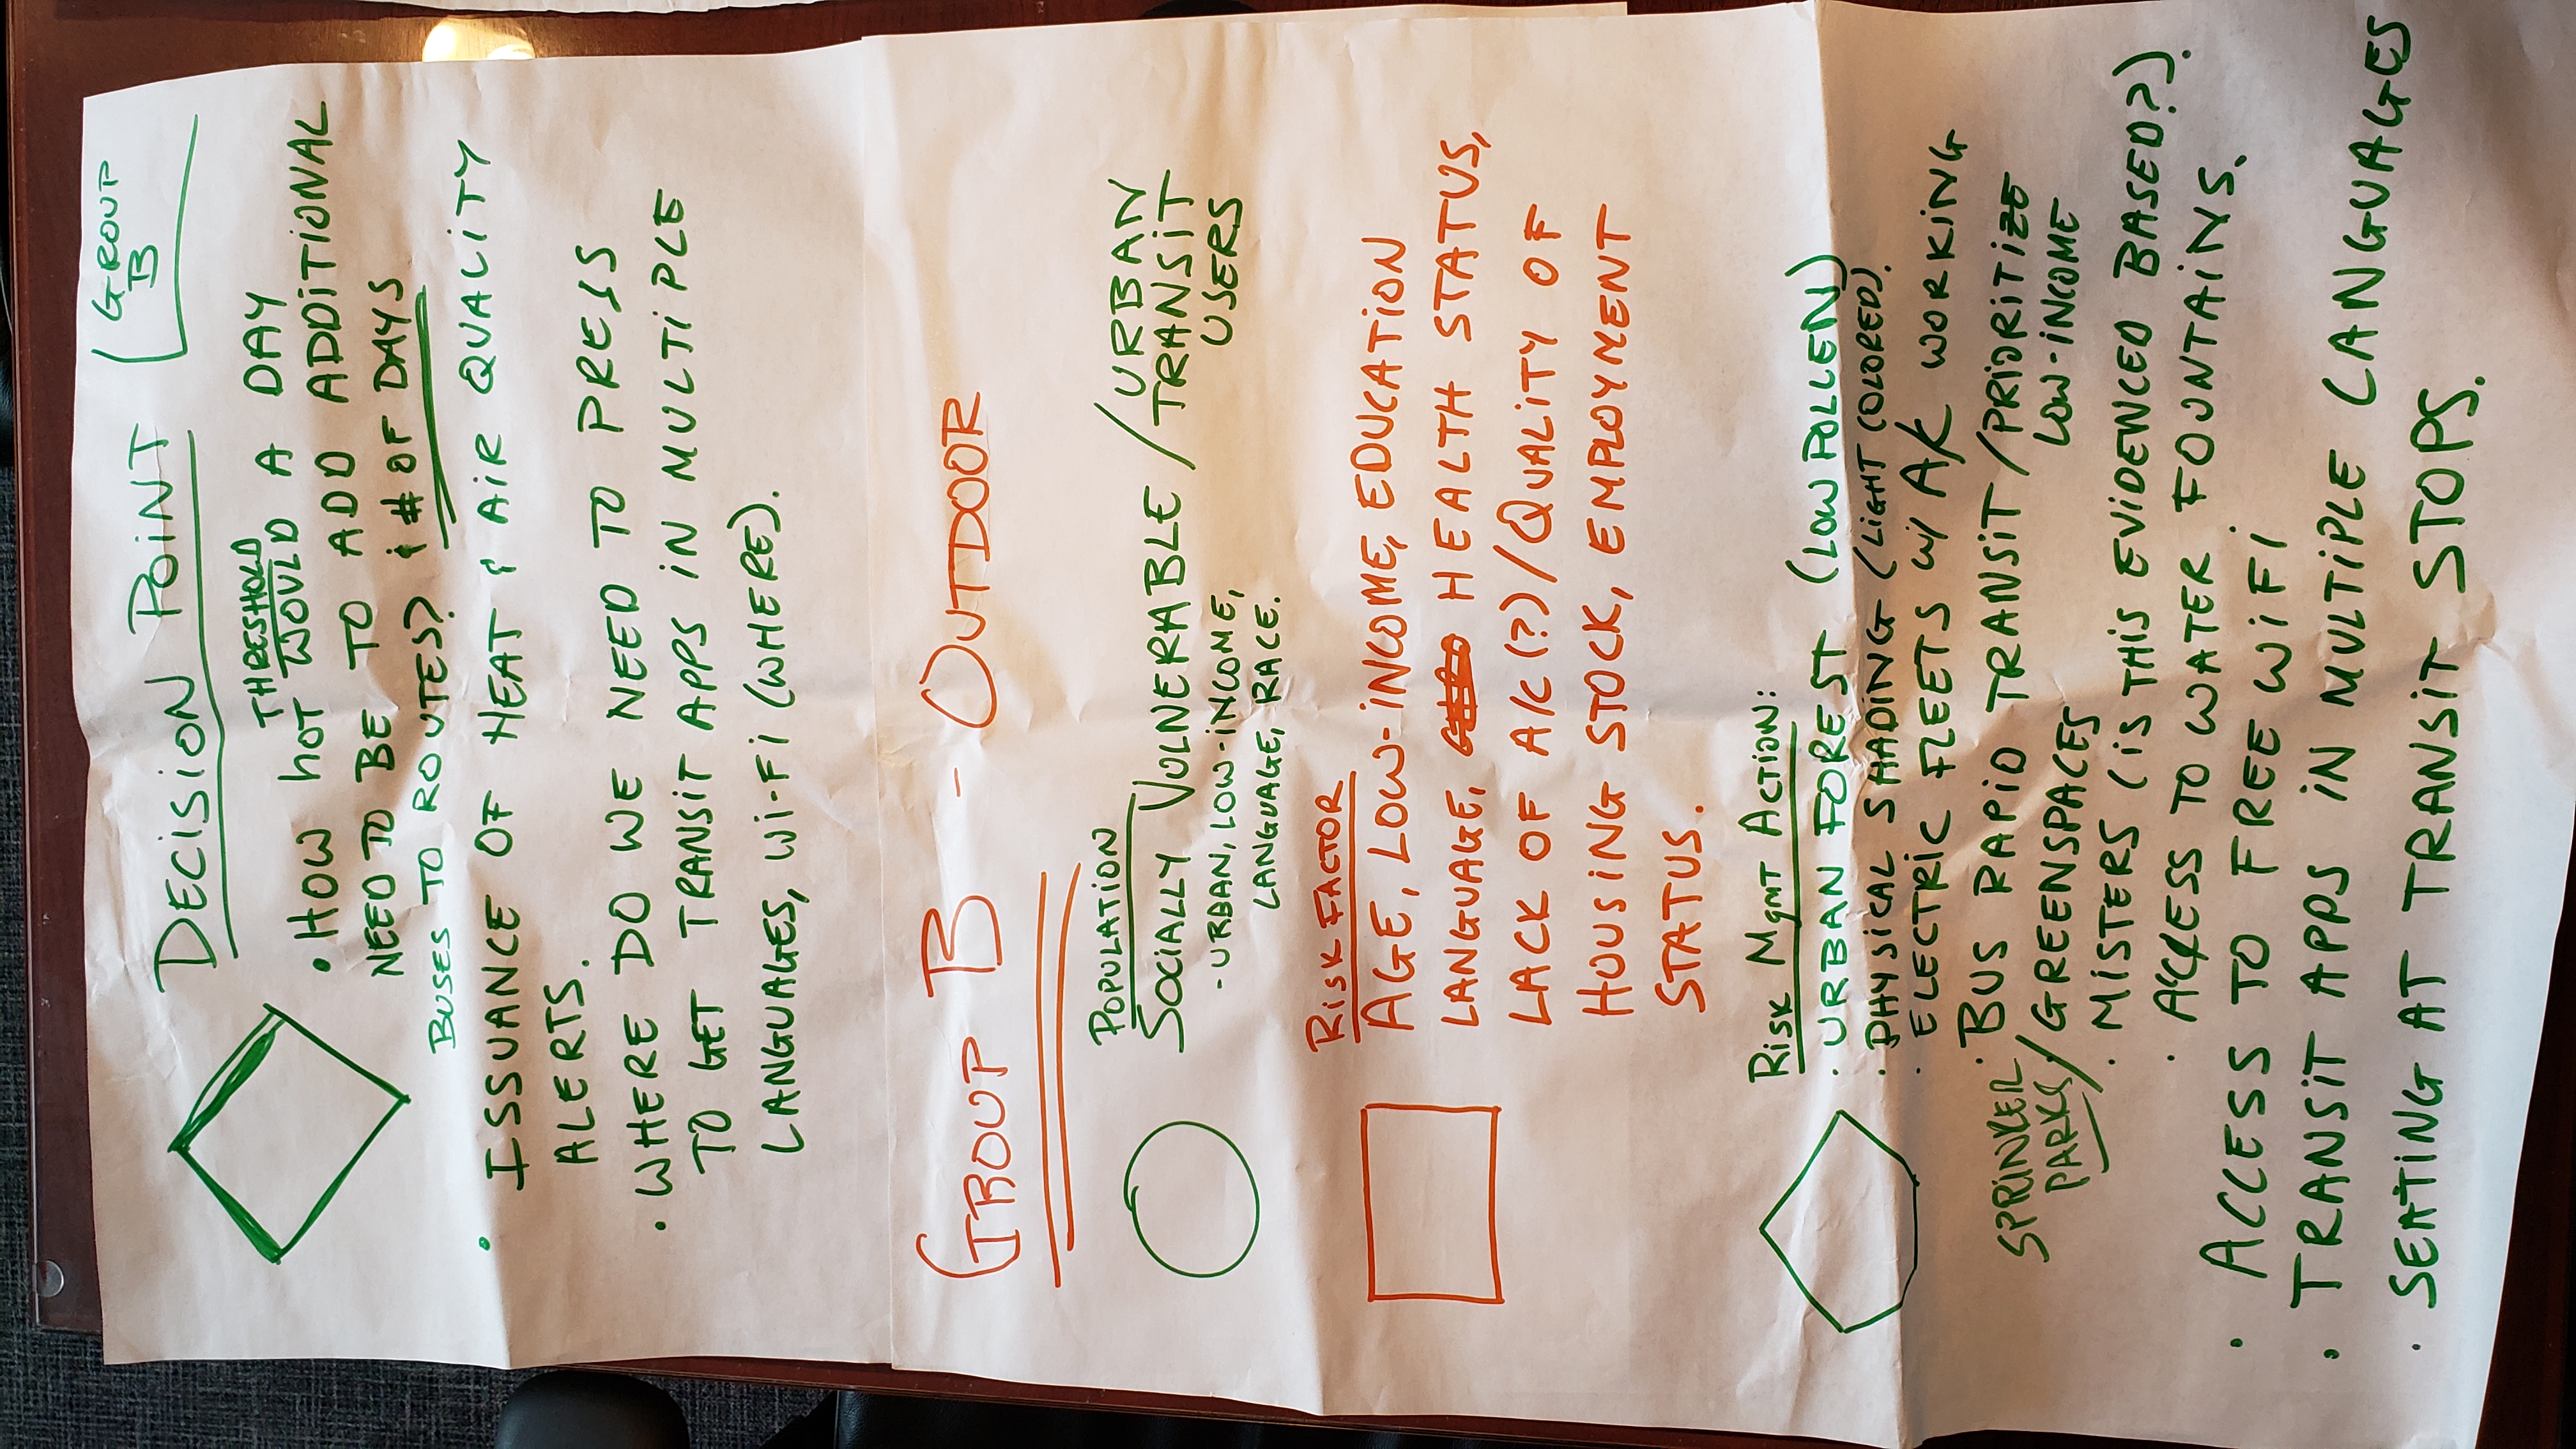 GROUP
B
DECISION POINT
THRESHOLD
• HOW hOT WOULD A DAY
NEED TO BE TO ADD ADDITIONAL
BUSES TO ROUTES? & # OF DAYS
• ISSUANCE OF HEAT & AIR QUALITY
ALERTS.
• WHERE DO WE NEED TO PRESS
TO GET TRANSIT APPS IN MULTIPLE
LANGUAGES, Wi-Fi (WHERE).
GROUP B - OUTDOOR
POPULATION
SOCIALLY VULNERABLE / URBAN
TRANSIT
USERS
- URBAN, LOW-INCOME,
LANGUAGE, RACE.
RISK FACTOR
AGE, LOW-INCOME, EDUCATION
LANGUAGE, HEALTH STATUS,
LACK OF A/C (?) / QUALITY OF
HOUSING STOCK, EMPLOYMENT
STATUS.
RISK MgMT ACTION:
• URBAN FOREST (LOW POLLEN)
• PHYSICAL SHADING (LIGHT COLORED).
• ELECTRIC FLEETS w/ A/C WORKING
• BUS RAPID TRANSIT / PRIORITIZE
LOW-INCOME
SPRINKER
PARKS / GREENSPACES
• MISTERS (IS THIS EVIDENCED BASED?).
• ACCESS TO WATER FOUNTAINS.
• ACCESS TO FREE WiFi
• TRANSIT APPS IN MULTIPLE LANGUAGES
• SEATING AT TRANSIT STOPS.